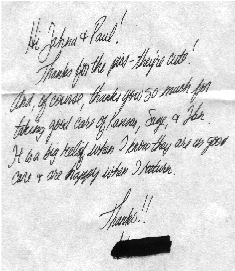 Hi Jahna & Paul!
Thanks for the pics - they're cute!
And, of course, thank you so much for
taking good care of
It is a big relief when I know they are in good
care & are happy when I return.
Thanks!!